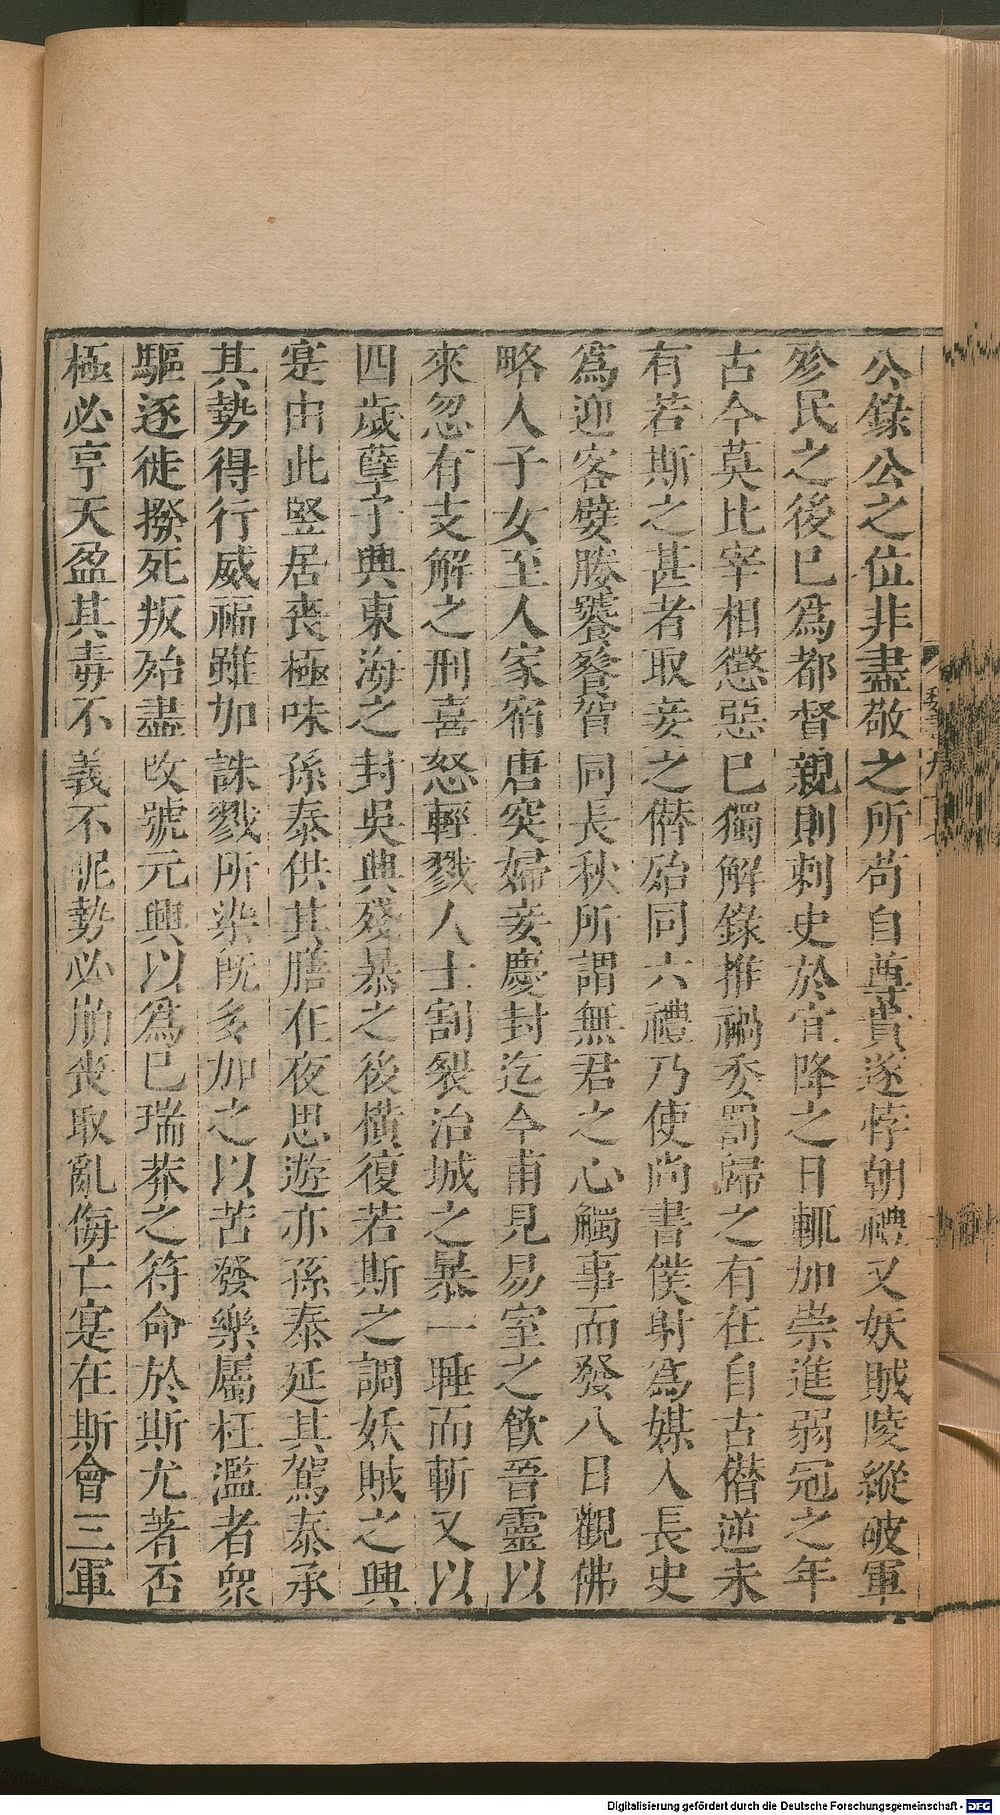 公錄公之位非盡敬之所苟自尊貴遂悖朝禮又妖賊陵縱破軍
殄民之後已爲都督親則刺史於宜降之日輒加崇進弱冠之年
古今莫比宰相懲惡已獨解錄推禍委罰歸之有在自古僭逆未
有若斯之甚者取妾之僭殆同六禮乃使尚書僕射爲媒人長史
爲迎客嬖媵饕餮賀同長秋所謂無君之心觸事而發八日觀佛
略人子女至人家宿唐突婦妾慶封迄今甫見易室之飲晉靈以
來忽有支解之刑喜怒輕戮人士割裂治城之暴一睡而斬又以
四歲孽子興東海之封吳興殘暴之後橫復若斯之調妖賊之興
寔由此竪居喪極味孫泰供其膳在夜思遊亦孫泰延其駕泰承
其勢得行威福雖加誅戮所染旣多加之以苦發樂屬枉濫者衆
驅逐徙撥死叛殆盡改號元興以爲已瑞莽之符命於斯尤著否
極必亨天盈其毒不義不昵勢必崩喪取亂侮亡寔在斯會三軍
Digitalisierung gefördert durch die Deutsche Forschungsgemeinschaft - DFG